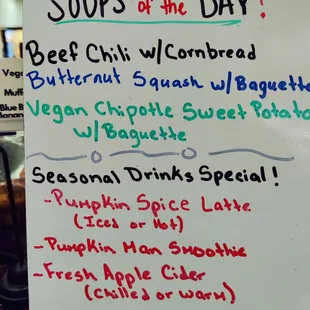 SOUPS of the DAY!
Beef Chili w/Cornbread
Butternut Squash w/Baguette
Vegan Chipotle Sweet Potato
w/Baguette
Seasonal Drinks Special!
-Pumpkin Spice Latte
(Iced or Hot)
-Pumpkin Man Smoothie
-Fresh Apple Cider
(Chilled or Warm)
Vega
Muff
Blue B
Banana